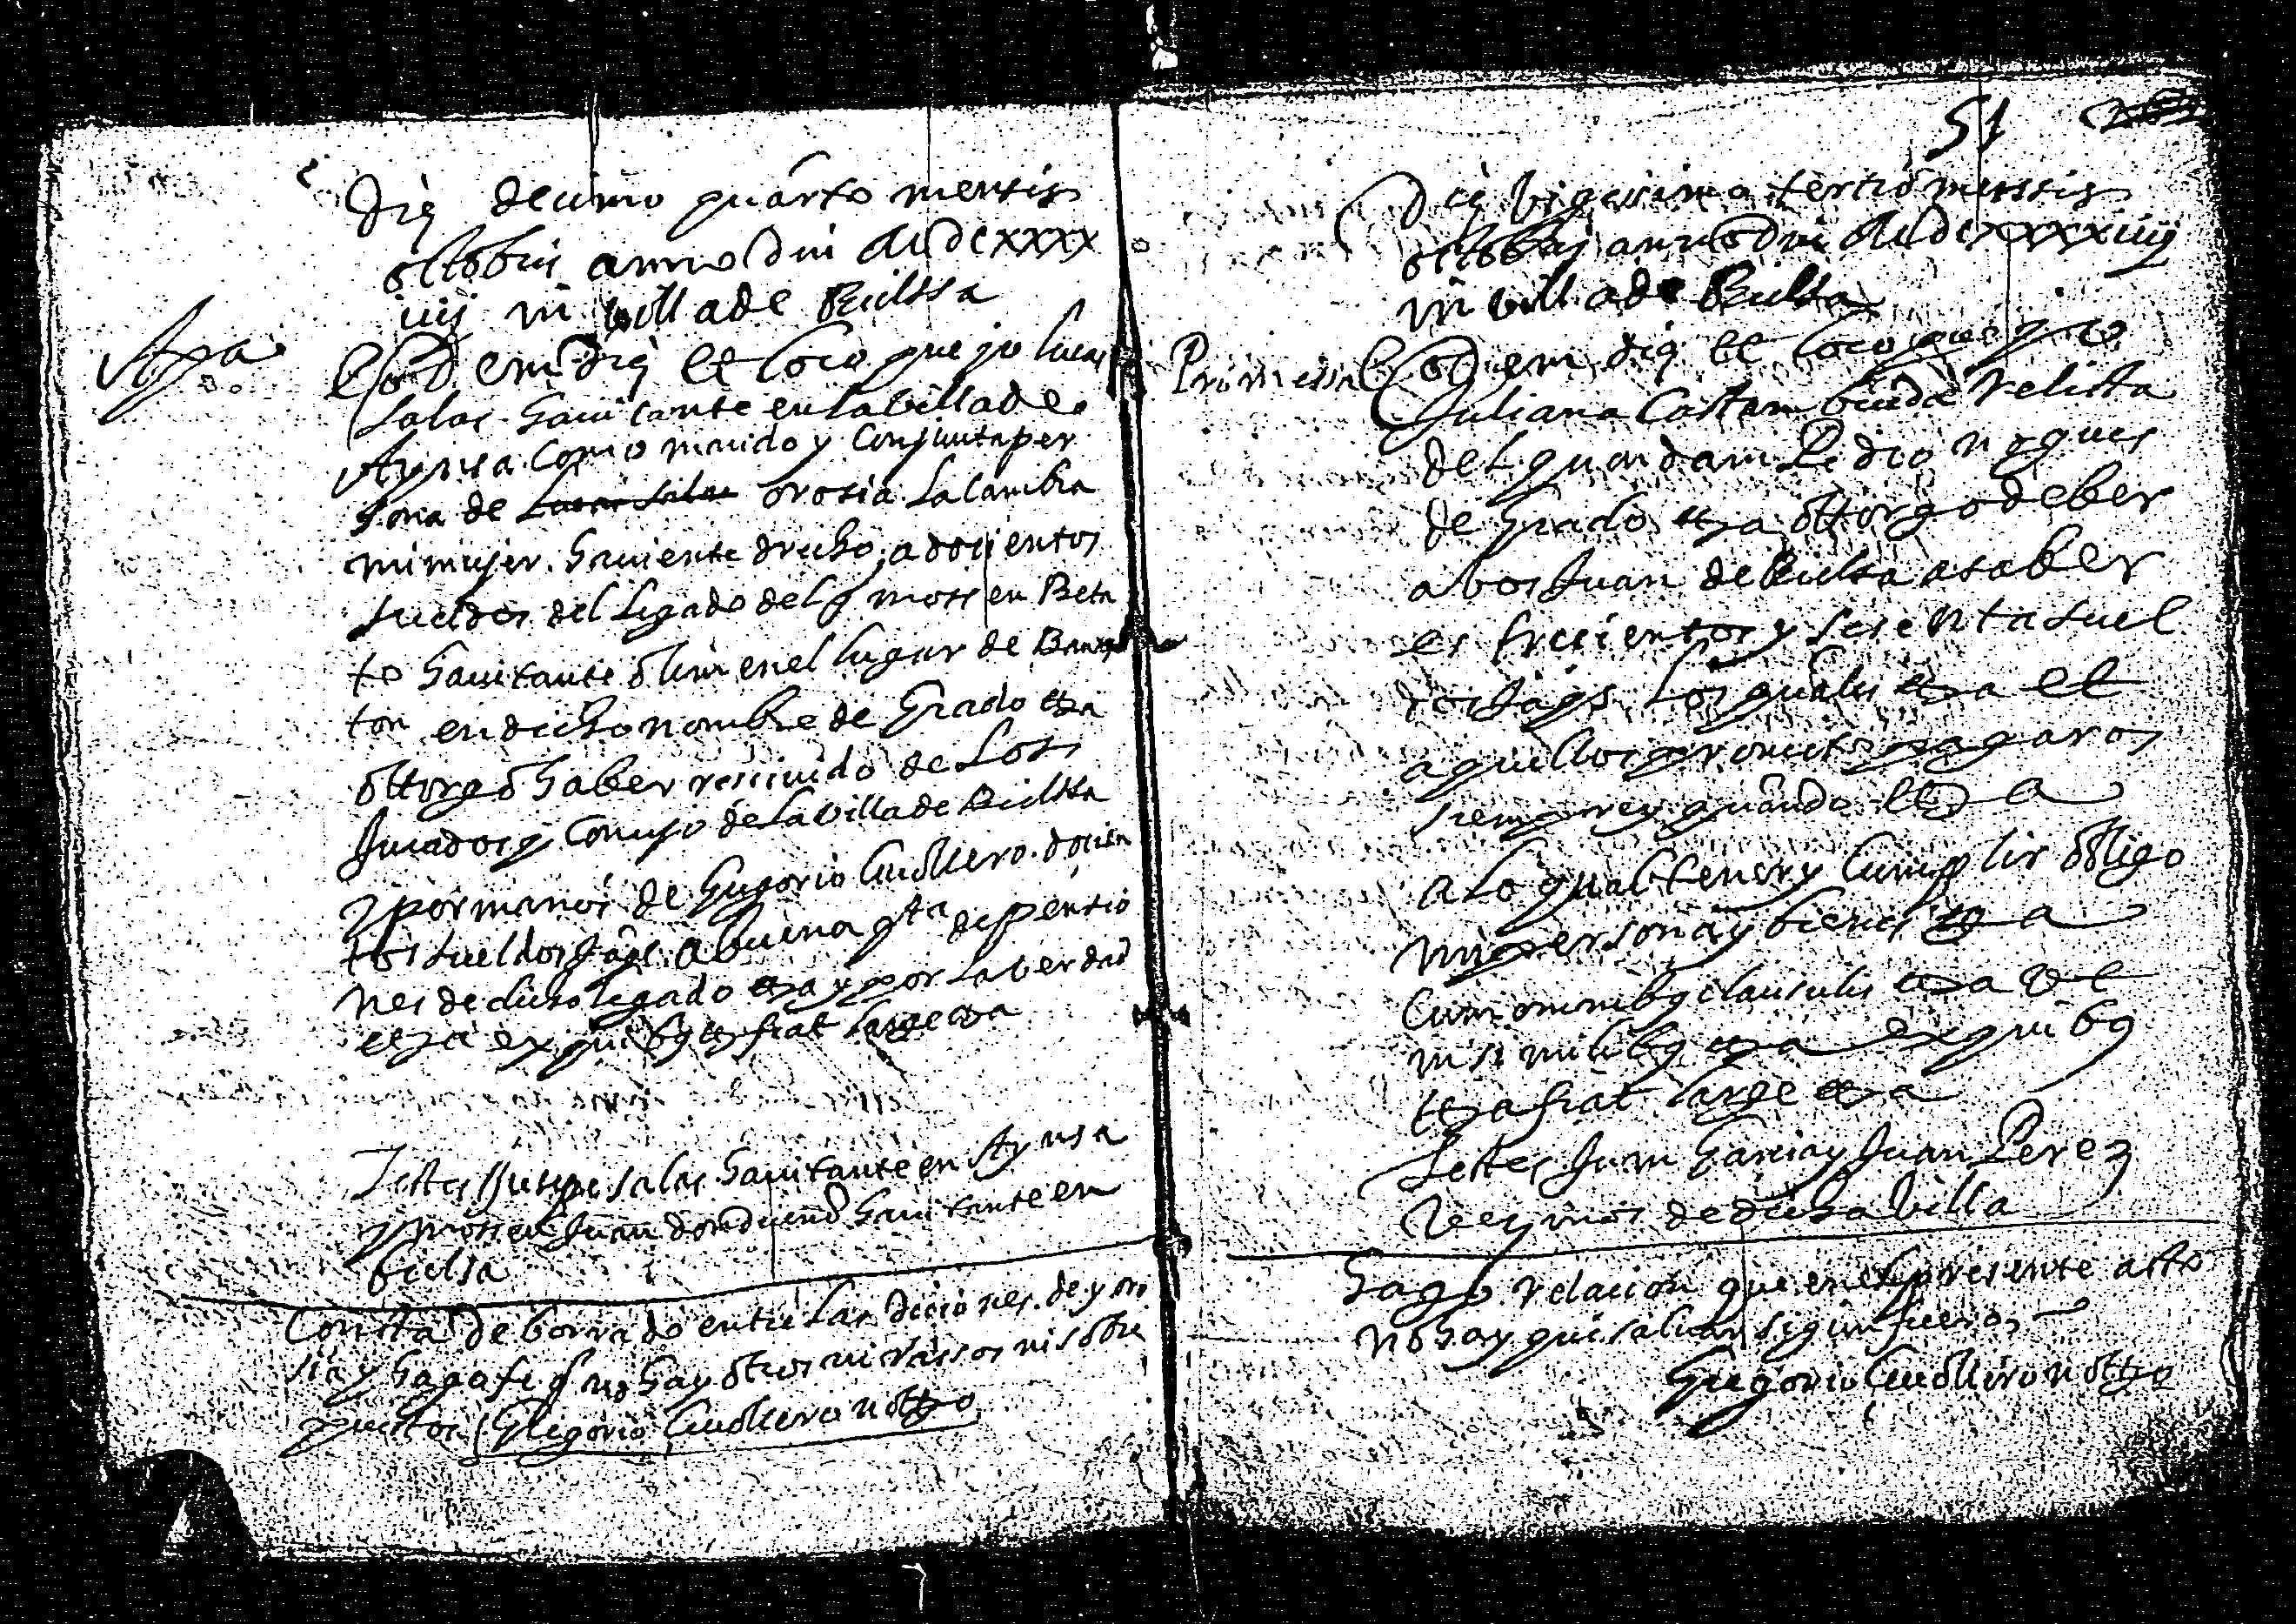 Die decimo quarto mensis
octobris anno Dni MDCXXXX
iiij in villa de Bielssa
Apa
Eodem die et loco que yo Lucas
Salas havitante en la villa de
Aynsa como marido y conjunta per
sona de Lucas Salas orosia Lalambra
mi mujer haviente drecho a docientos
sueldos del legado del q mossen Beta
to havitante olim en el lugar de
ton en dicho nombre de grado etza
ottorgo haber rescivido de los
Jurados y Consejo de la villa de Bielssa
y por manos de Gregorio Cuollero docien
tos sueldos Jaqs a buena qta de pensio
nes de dicho legado etza y por la verdad
etza ex quibus etz fiat large etza
Testes Jusepe Salas havitante en Aynsa
y mossen Juan havitante en
bielsa
Consta de borrado entre las diciones de y oro
sia y haga fe q no hay otros ni rassos ni sobre
puestos Gregorio Cuollero notto
51
Die vigesimo tertio mensis
octobris anno Dni MDCXXXXiiij
in villa de Bielsa
Promessa
Eodem die et loco que yo
Juliana Castan biuda relicta
del quondam Pedro nogues
de grado etza ottorgo deber
a bos Juan de Bielsa a saber
es trecientos y sesenta suel
dos Jaqs los quales etza et
aquellos prometo pagaros
siempre y quando etza
a lo qual tener y cumplir obligo
mi persona y bienes etza
Cum omnibus clausulis etza et
in similibus etza ex quibus
etza fiat large etza
Testes Juan Garcia y Juan Perez
Vecinos de dicha villa
Hago relacion que en el presente acto
no hay que salvar segun fueros
Gregorio Cuollero notto